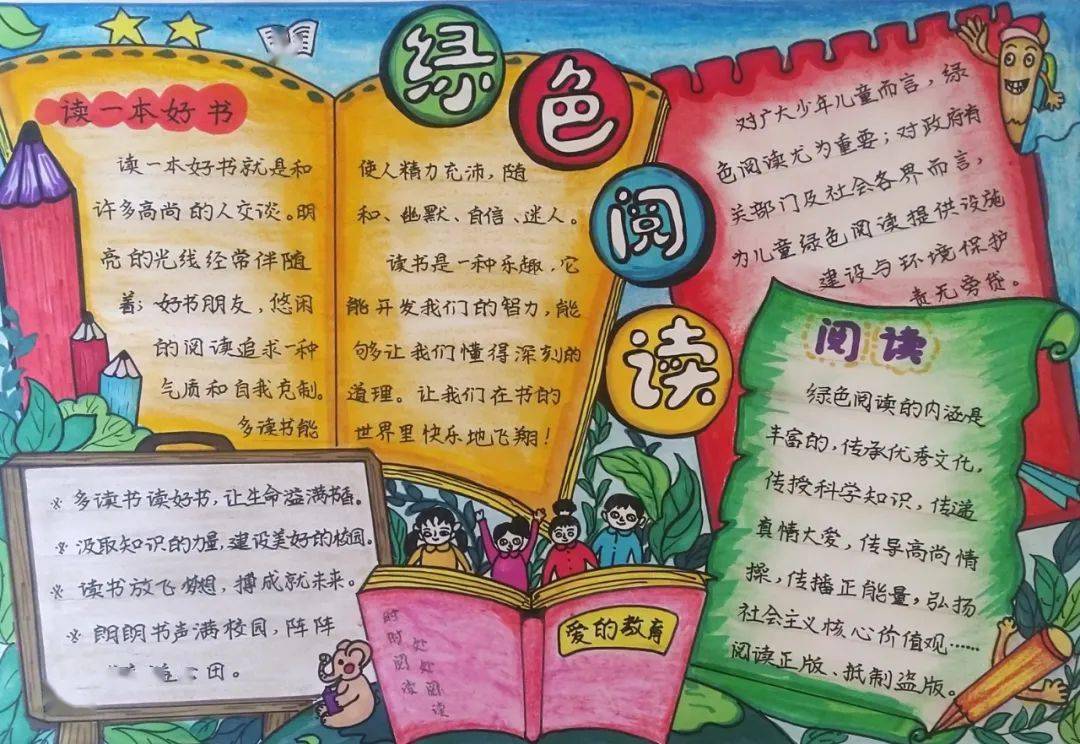 绿色阅读
读一本好书
读一本好书就是和
许多高尚的人交谈。明
亮的光线经常伴随
着；好书朋友，悠闲
的阅读追求一种
气质和自我克制。
多读书能
使人精力充沛，随
和、幽默、自信、迷人。
读书是一种乐趣，它
能开发我们的智力，能
够让我们懂得深刻的
道理。让我们在书的
世界里快乐地飞翔！
对广大少年儿童而言，绿
色阅读尤为重要；对政府有
关部门及社会各界而言，
为儿童绿色阅读提供设施
建设与环境保护
责无旁贷。
阅读
绿色阅读的内涵是
丰富的，传承优秀文化，
传授科学知识，传递
真情大爱，传导高尚情
操，传播正能量，弘扬
社会主义核心价值观……
阅读正版、抵制盗版。
※ 多读书读好书，让生命溢满书香。
※ 汲取知识的力量，建设美好的校园。
※ 读书放飞梦想，搏成就未来。
※ 朗朗书声满校园，阵阵
田。
时时阅读
处处阅读
爱的教育